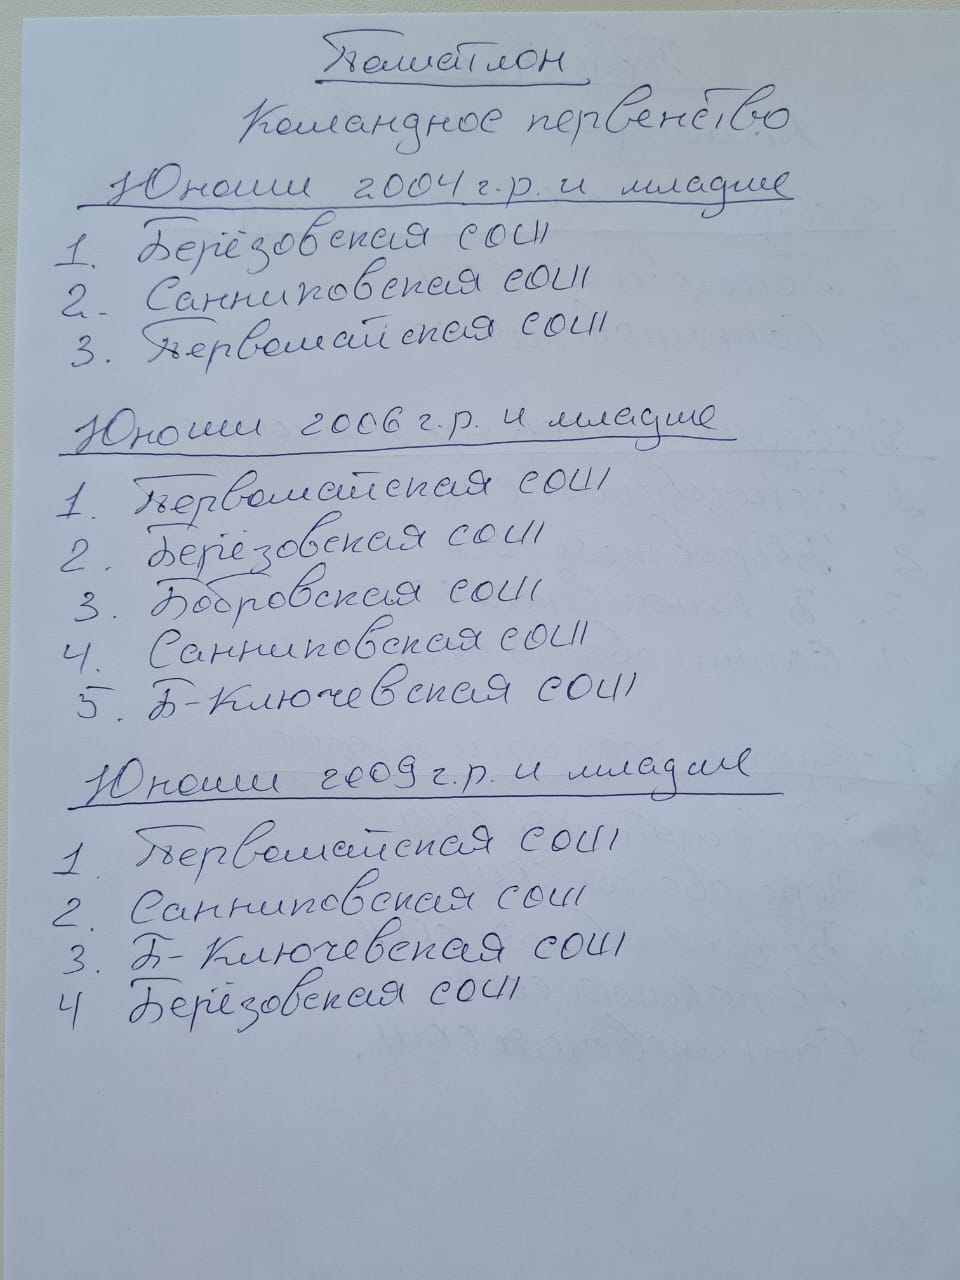 Полиатлон
Командное первенство
Юноши 2004 г.р. и младше
1. Берёзовская сош
2. Санниковская сош
3. Первомайская сош
Юноши 2006 г.р. и младше
1. Первомайская сош
2. Берёзовская сош
3. Бобровская сош
4. Санниковская сош
5. Б-Ключевская сош
Юноши 2009 г.р. и младше
1. Первомайская сош
2. Санниковская сош
3. Б-Ключевская сош
4 Берёзовская сош